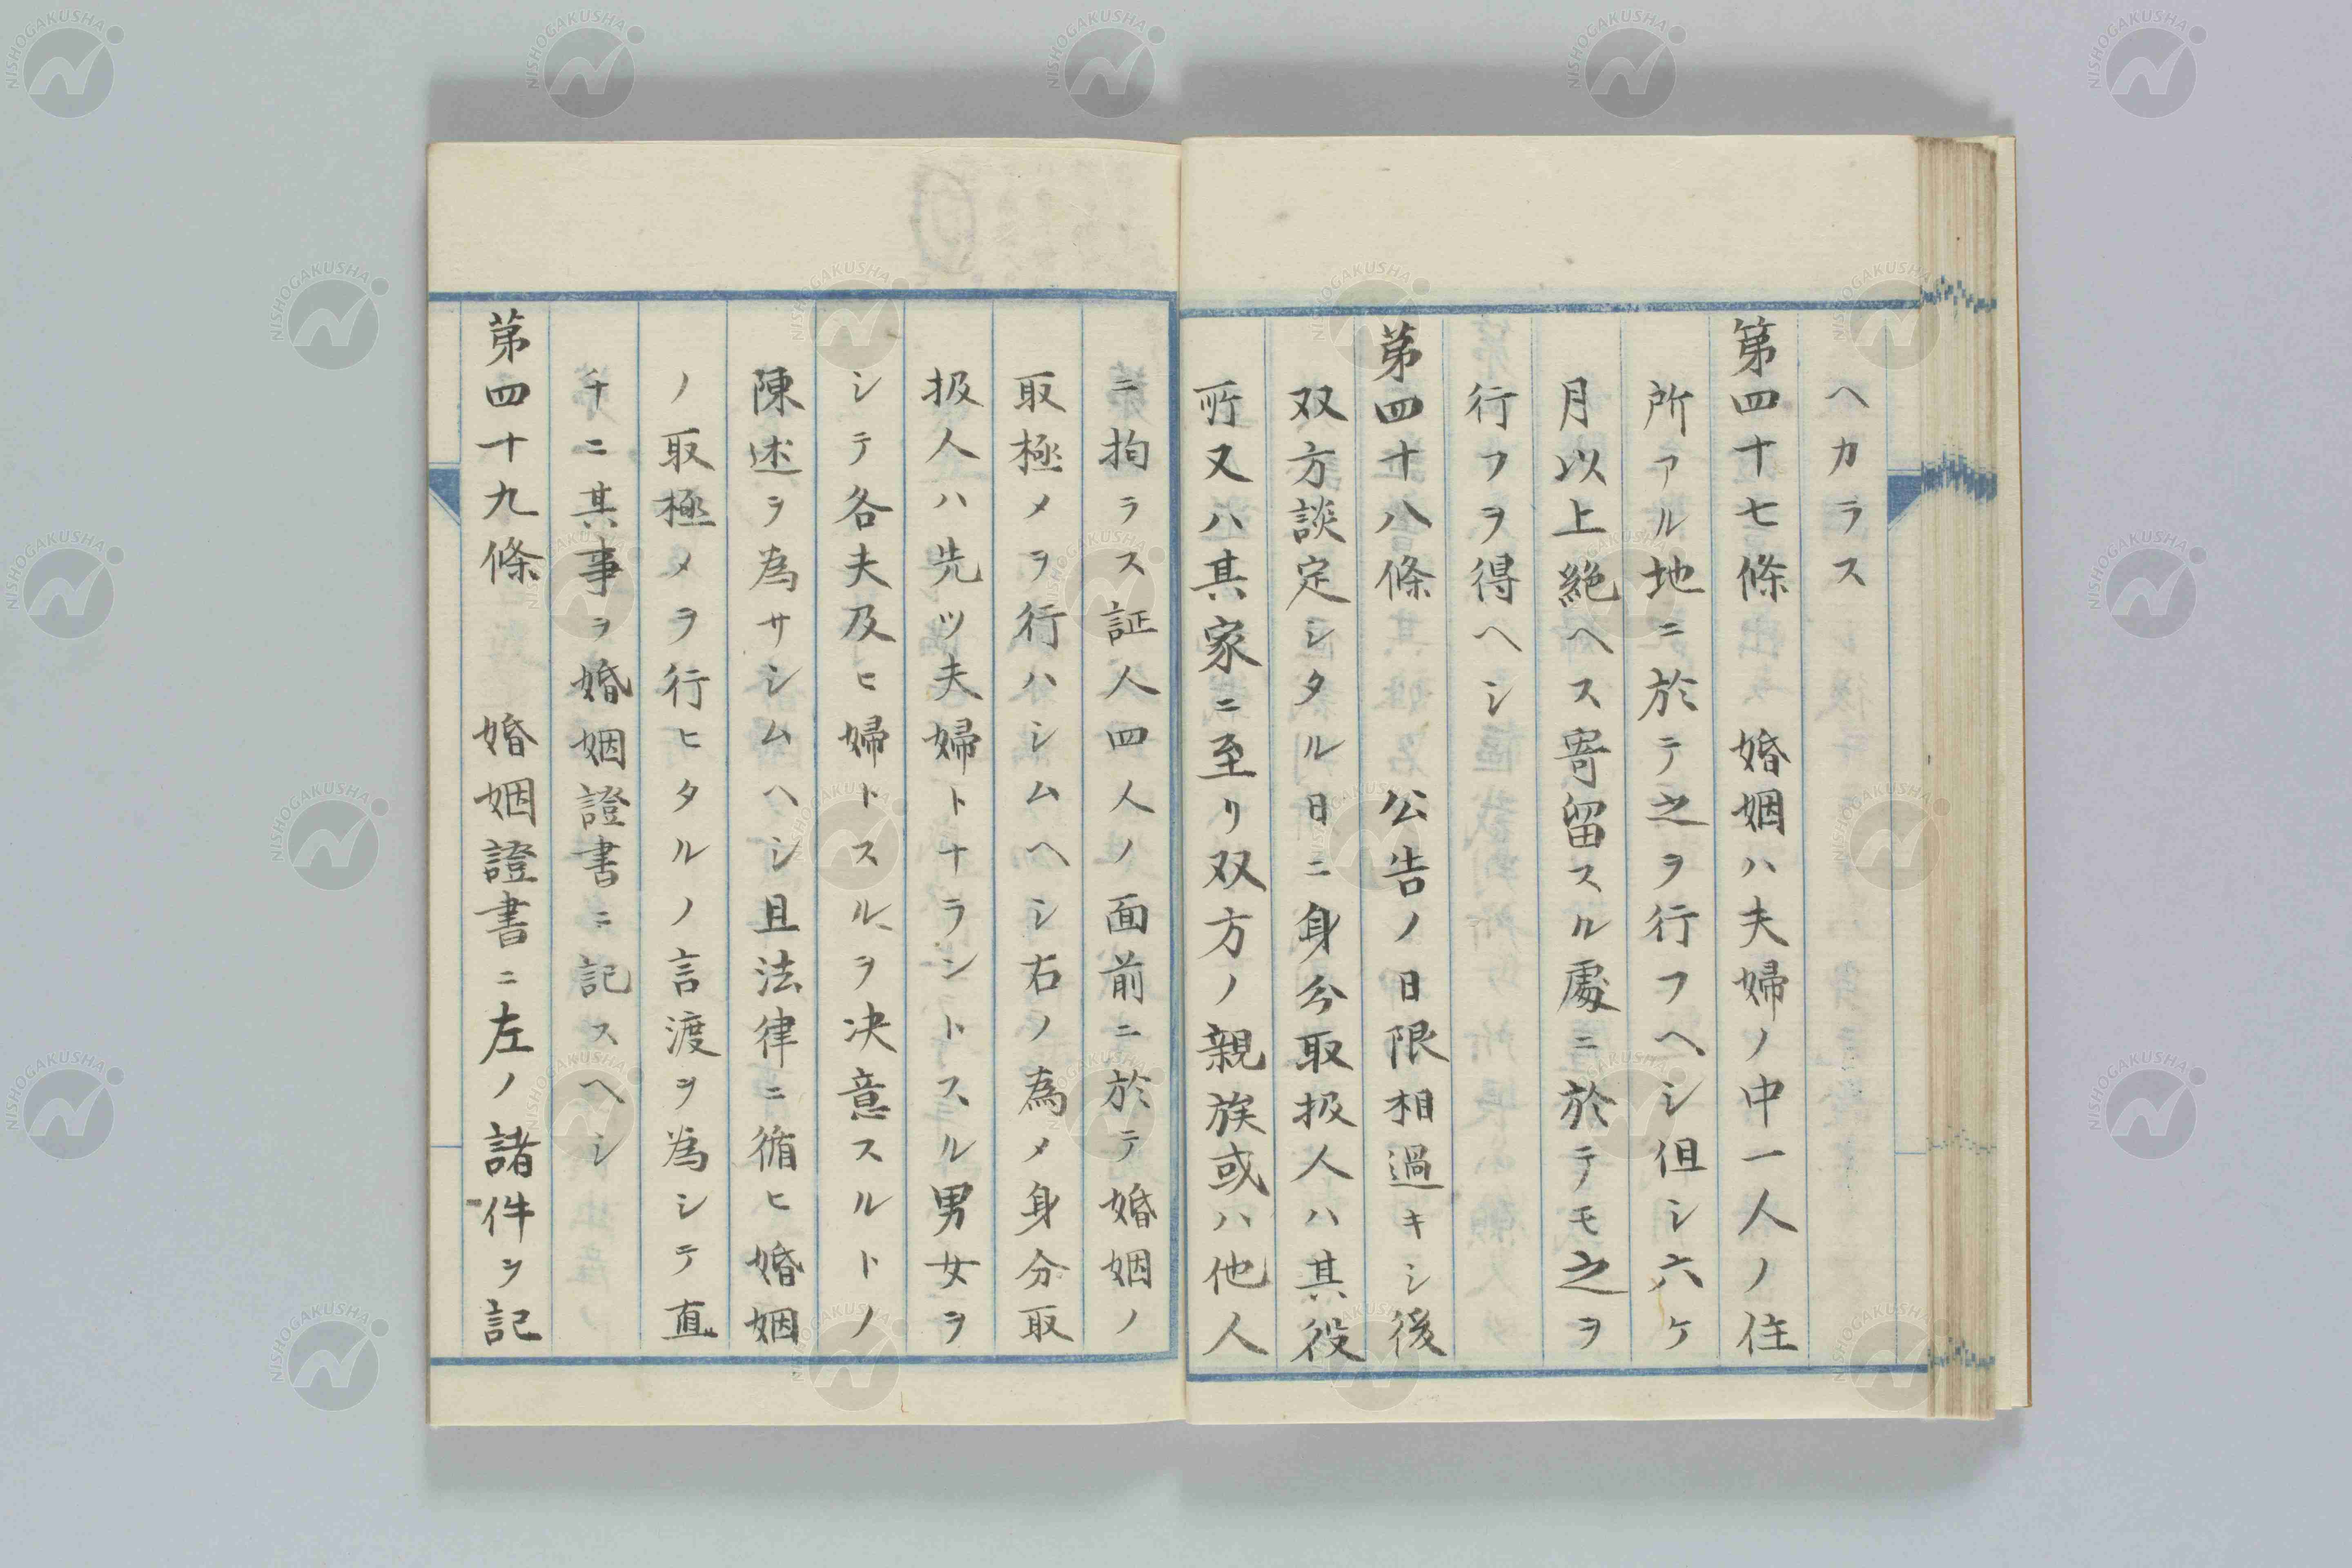 ヘカラス
第四十七條 婚姻ハ夫婦ノ中一人ノ住
所アル地ニ於テ之ヲ行フヘシ但シ六ケ
月以上絶ヘス寄留スル處ニ於テモ之ヲ
行フヲ得ヘシ
第四十八條 公告ノ日限相過キシ後
双方談定シタル日ニ身分取扱人ハ其役
所又ハ其家ニ至リ双方ノ親族或ハ他人
ニ拘ラス証人四人ノ面前ニ於テ婚姻ノ
取極メヲ行ハシムヘシ右ノ為メ身分取
扱人ハ先ツ夫婦トナラントスル男女ヲ
シテ各夫及ヒ婦トスルヲ决意スルトノ
陳述ヲ為サシムヘシ且法律ニ循ヒ婚姻
ノ取極メヲ行ヒタルノ言渡ヲ為シテ直
チニ其事ヲ婚姻證書ニ記スヘシ
第四十九條 婚姻證書ニ左ノ諸件ヲ記
NISHOGAKUSHA